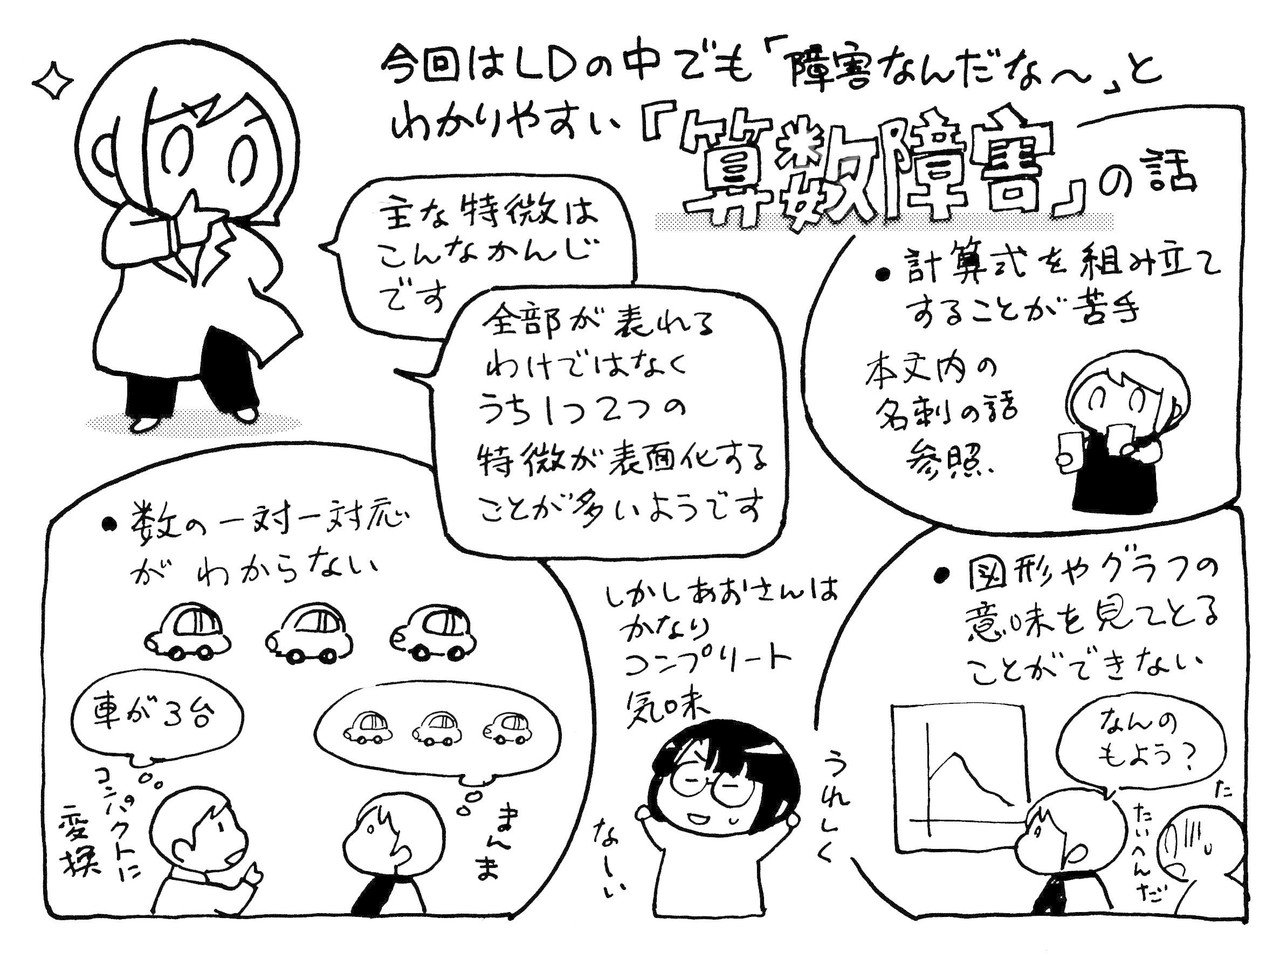 今回はLDの中でも「障害なんだな〜」と
わかりやすい「算数障害」の話
主な特徴は
こんなかんじ
です
全部が表れる
わけではなく
うち1つ2つの
特徴が表面化する
ことが多いようです
・計算式を組み立て
することが苦手
本文内の
名刺の話
参照.
・数の一対一対応
がわからない
車が3台
コンパクトに
変換
まんま
しかしあおさんは
かなり
コンプリート
気味
うれしく
なーい
・図形やグラフの
意味を見てとる
ことができない
なんの
もよう?
た
たいへんだ